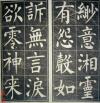 緲意湘靈
有怨聲如
訴無言淚
欲零神來